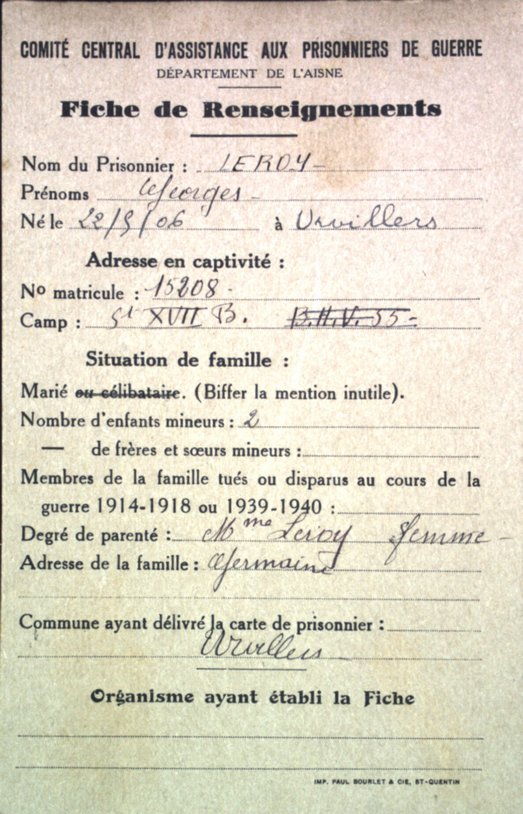 COMITÉ CENTRAL D'ASSISTANCE AUX PRISONNIERS DE GUERRE
DÉPARTEMENT DE L'AISNE
Fiche de Renseignements
Nom du Prisonnier : LEROY
Prénoms Georges
Né le 22/9/06 à Urvillers
Adresse en captivité :
No matricule : 15208
Camp : St XVII B. B.H.V. 55
Situation de famille :
Marié ou célibataire. (Biffer la mention inutile).
Nombre d'enfants mineurs : 2
— de frères et sœurs mineurs :
Membres de la famille tués ou disparus au cours de la
guerre 1914-1918 ou 1939-1940 :
Degré de parenté : Mme Leroy femme
Adresse de la famille : Germaine
Commune ayant délivré la carte de prisonnier :
Urvillers
Organisme ayant établi la Fiche
IMP. PAUL BOURLET & CIE, ST-QUENTIN